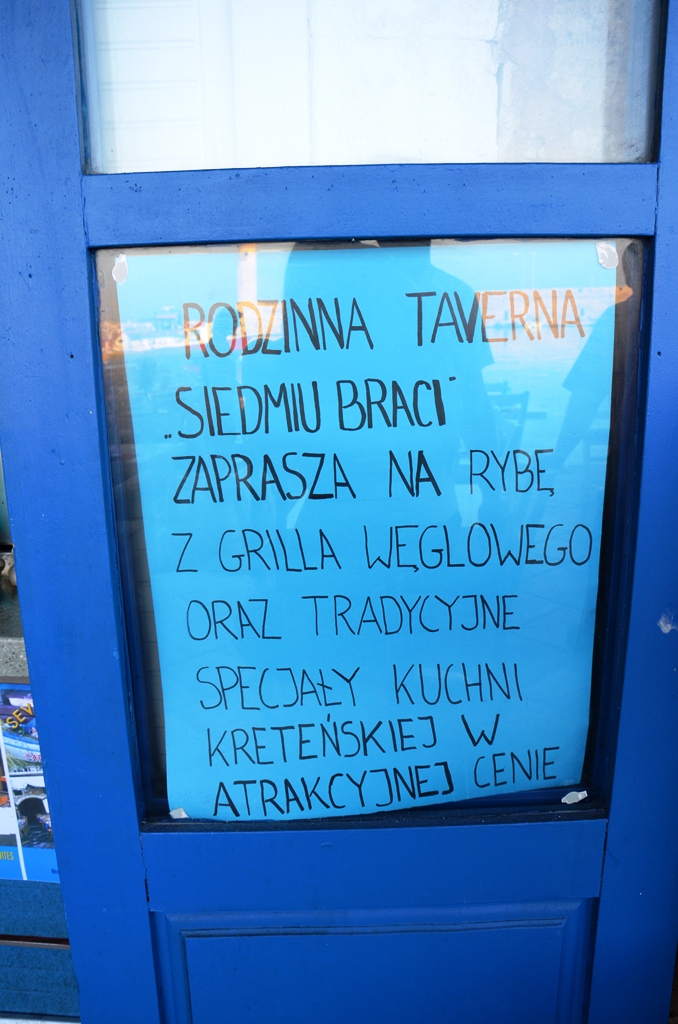 RODZINNA TAVERNA
„SIEDMIU BRACI"
ZAPRASZA NA RYBĘ
Z GRILLA WĘGLOWEGO
ORAZ TRADYCYJNE
SPECJAŁY KUCHNI
KRETEŃSKIEJ W
ATRAKCYJNEJ CENIE